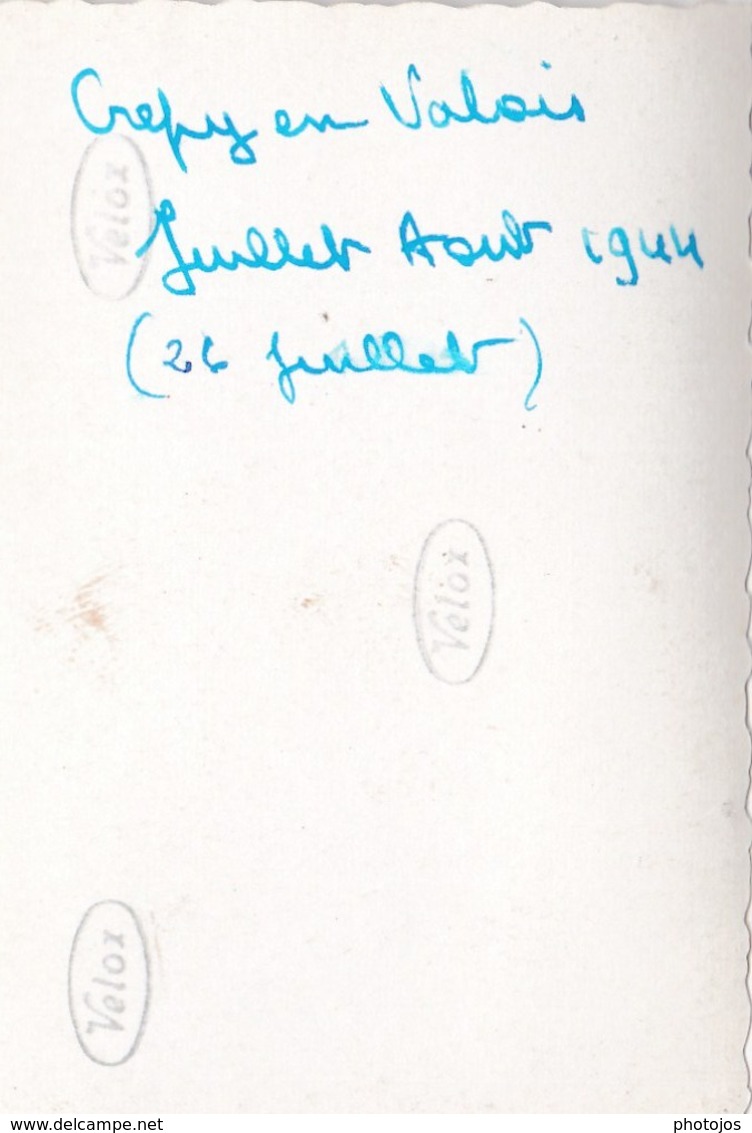 Crepy en Valois
Velox
Juillet Aout 1944
(26 Juillet)
Velox
Velox
www.delcampe.net
photojos